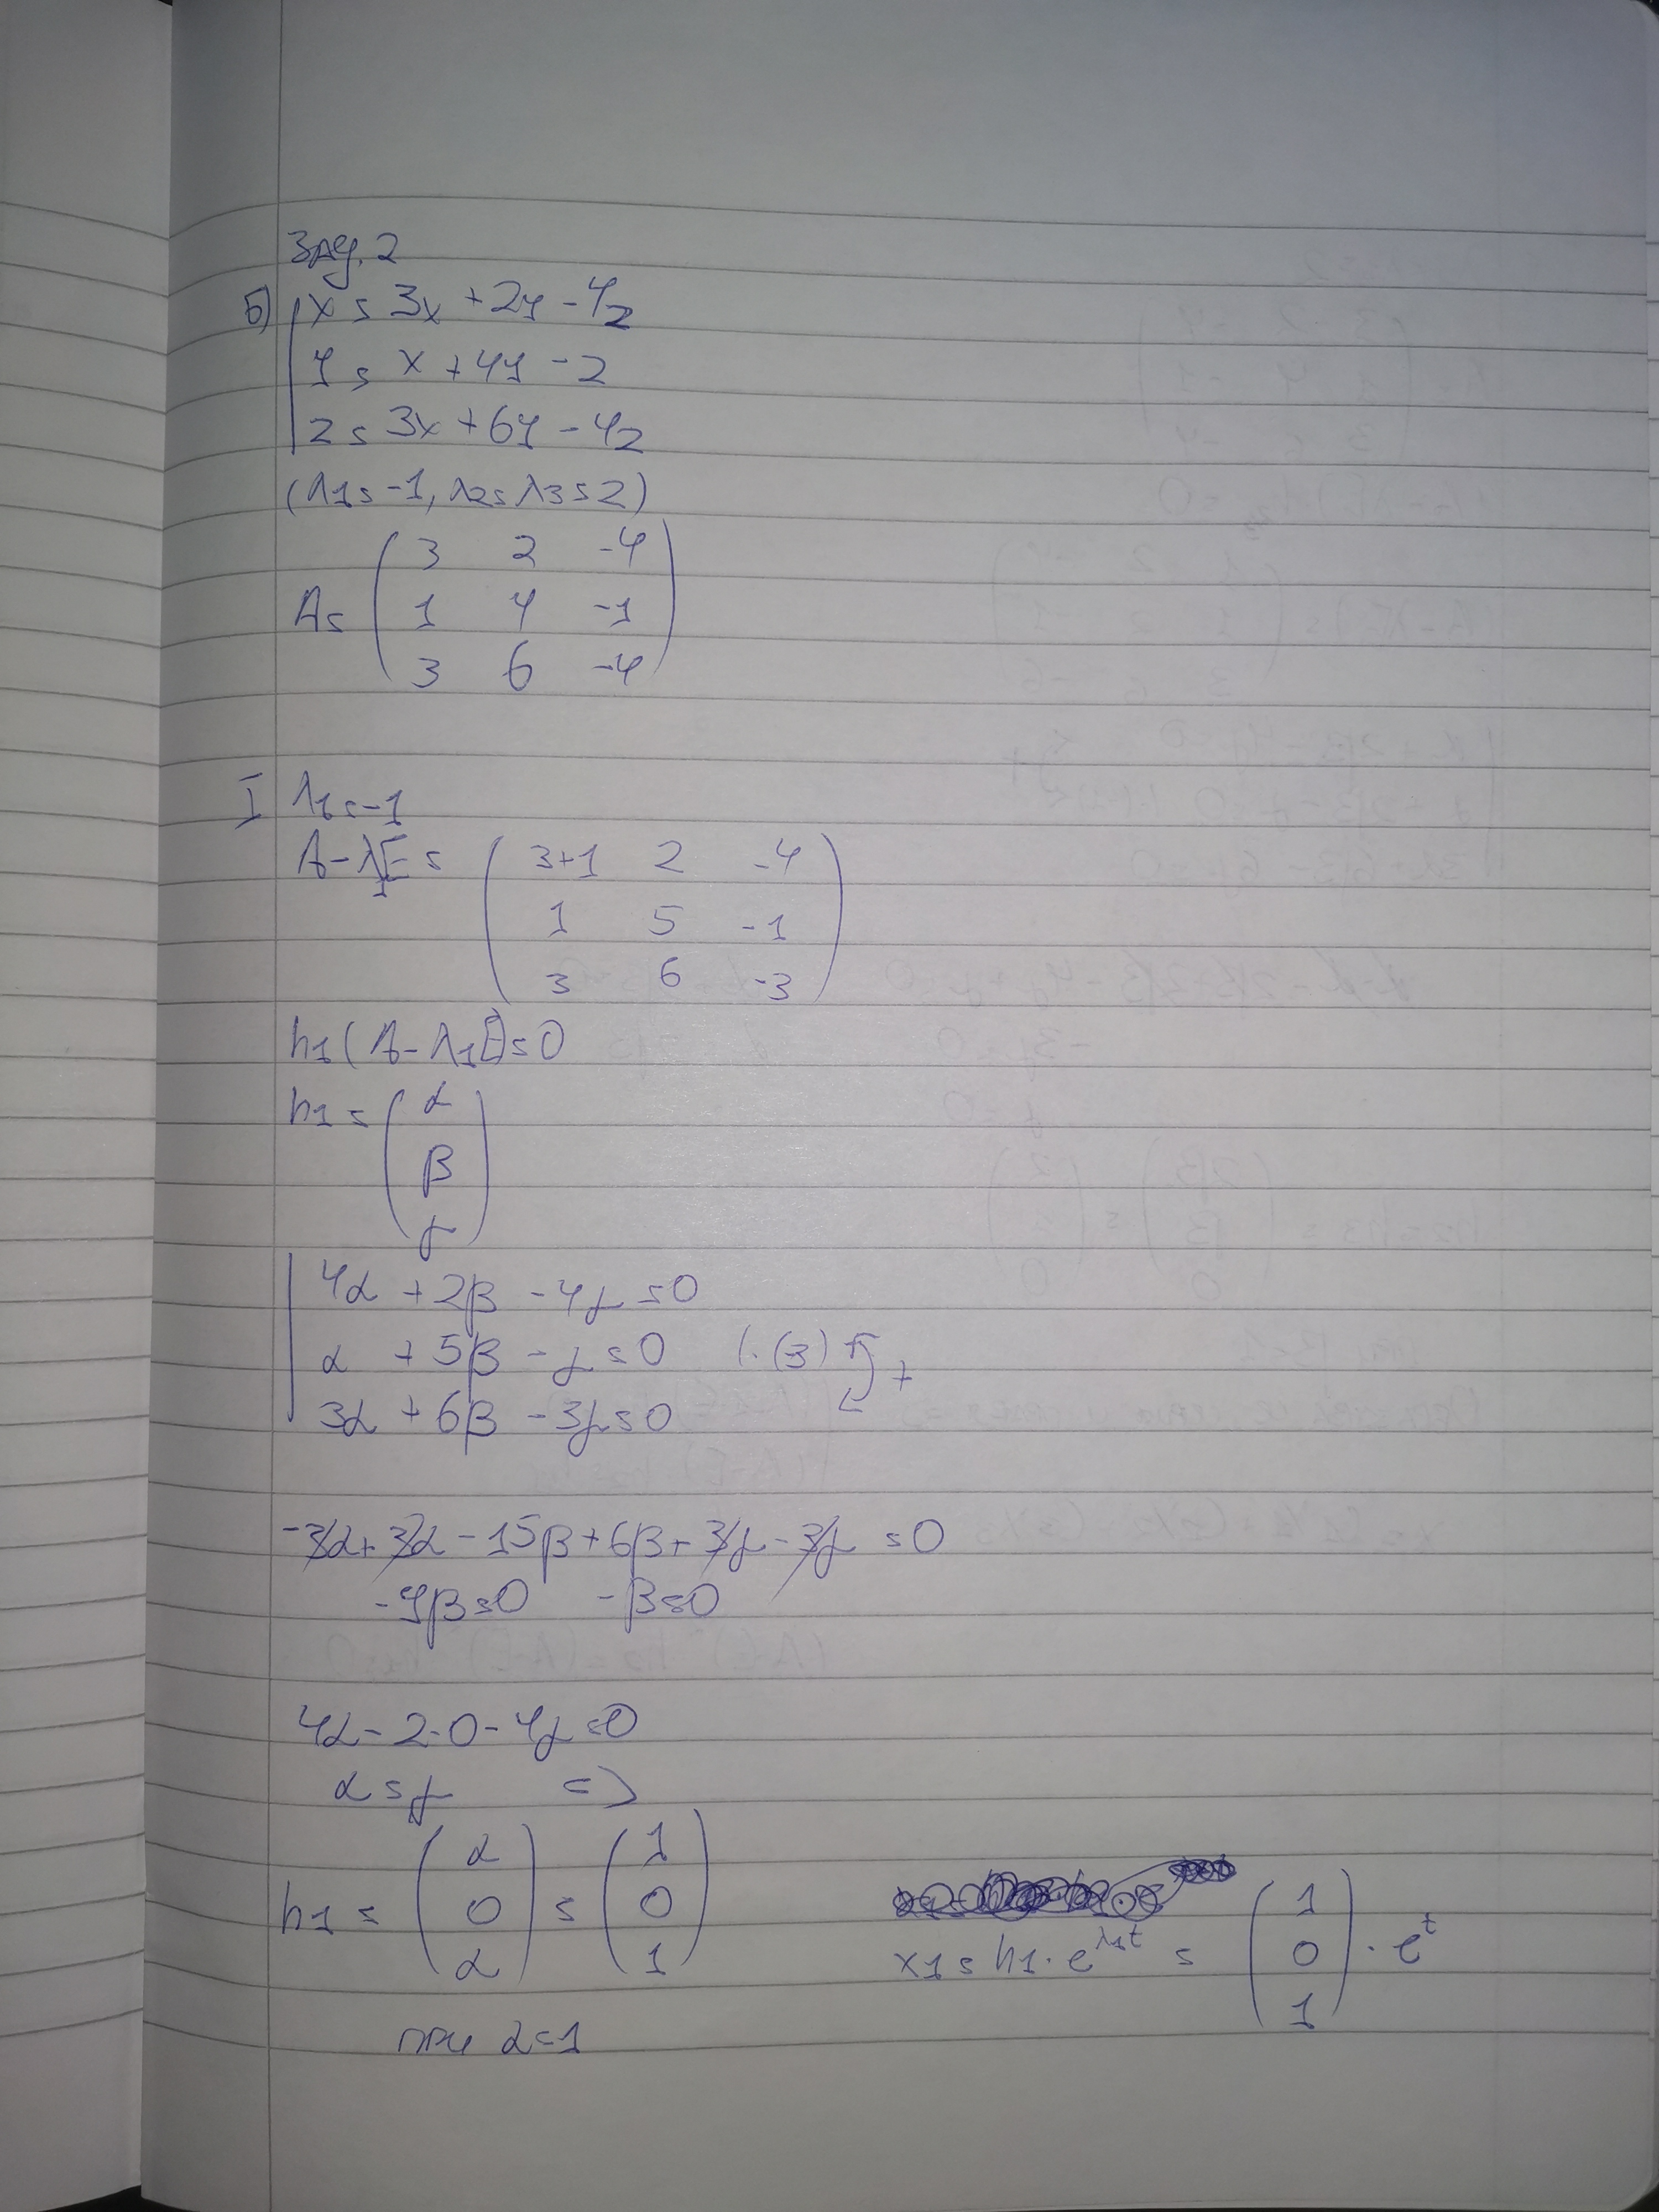 Зад. 2
б) | x = 3x + 2y - 4z
y = x + 4y - z
z = 3x + 6y - 4z
(λ1 = -1, λ2 = λ3 = 2)
A = ( 3 2 -4
1 4 -1
3 6 -4 )
I λ1 = -1
A - λ1E = ( 3+1 2 -4
1 5 -1
3 6 -3 )
h1 (A - λ1E) = 0
h1 = ( α
β
γ )
4α + 2β - 4γ = 0
α + 5β - γ = 0 | . (-3) +
3α + 6β - 3γ = 0
-3α + 3α - 15β + 6β + 3γ - 3γ = 0
-9β = 0 -β = 0
4α - 2.0 - 4γ = 0
α = γ =>
h1 = ( α 0 α ) = ( 1 0 1 )
x1 = h1 . e^λ1t = ( 1 0 1 ) . e^t
при α = 1